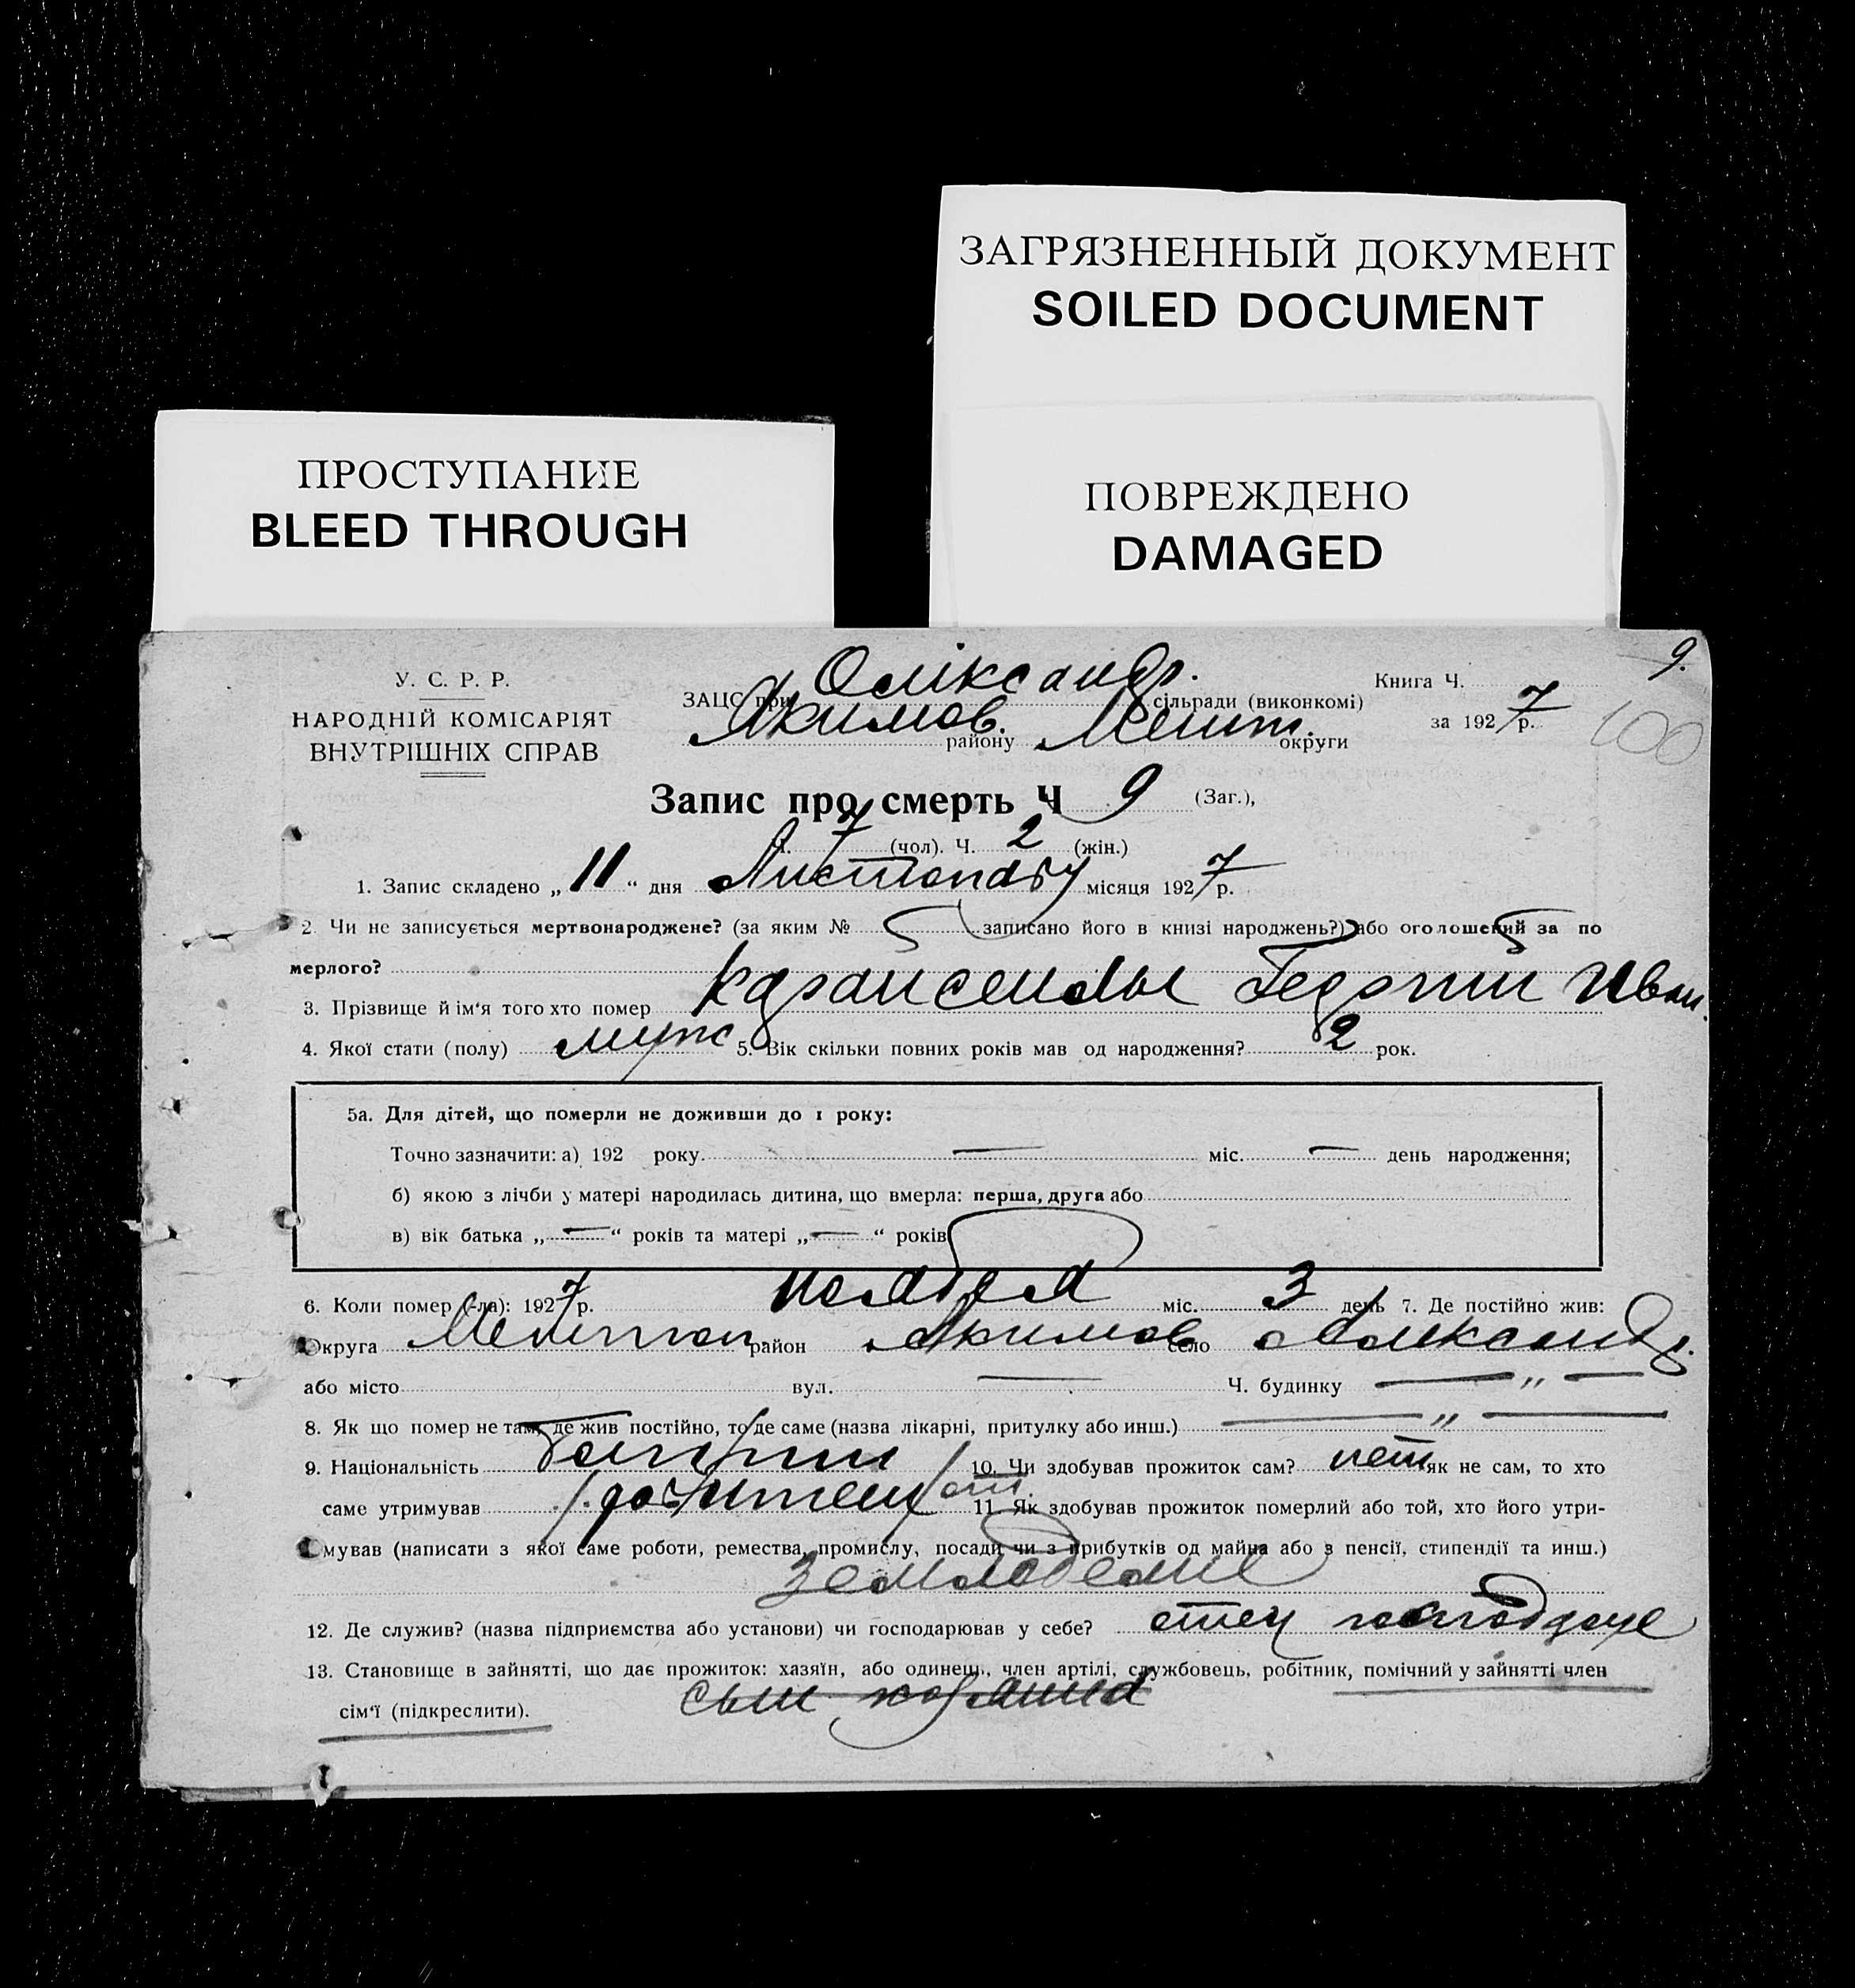 ЗАГРЯЗНЕННЫЙ ДОКУМЕНТ
SOILED DOCUMENT
ПРОСТУПАНИЕ
BLEED THROUGH
ПОВРЕЖДЕНО
DAMAGED
9.
У. С. Р. Р.
НАРОДНІЙ КОМІСАРІЯТ
ВНУТРІШНІХ СПРАВ
ЗАЦС при Оліксандр. сільради (виконкомі)
Якимов. району Меліт. округи
Книга Ч.
за 1927 р.
100
Запис про смерть Ч 9 (Заг.),
Ч. 7 (чол). Ч. 2 (жін.)
1. Запис складено „ 11 “ дня Листопаду місяця 1927 р.
2. Чи не записується мертвонароджене? (за яким № записано його в книзі народжень?) або оголошений за по
мерлого?
3. Прізвище й ім‘я того хто помер Георгий Иван.
4. Якої стати (полу) муж 5. Вік скільки повних років мав од народження? 2 рок.
5а. Для дітей, що померли не доживши до 1 року:
Точно зазначити: а) 192 року. — міс. — день народження;
б) якою з лічби у матері народилась дитина, що вмерла: перша, друга або
в) вік батька „ — “ років та матері „ — “ років
6. Коли помер (-ла): 1927 р. ноября міс. 3 день 7. Де постійно жив:
Округа Мелитоп. район Акимов село Александр.
або місто вул. — Ч. будинку — „ —
8. Як що помер не там, де жив постійно, то де саме (назва лікарні, притулку або инш.) — „ —
9. Національність Болгарин 10. Чи здобував прожиток сам? нет як не сам, то хто
саме утримував родители 11. Як здобував прожиток померлий або той, хто його утри-
мував (написати з якої саме роботи, ремества, промислу, посади чи з прибутків од майна або з пенсії, стипендії та инш.)
земледелие
12. Де служив? (назва підприємства або установи) чи господарював у себе? отец
13. Становище в зайнятті, що дає прожиток: хазяїн, або одинець, член артілі, службовець, робітник, помічний у зайнятті член
сім‘ї (підкреслити). сын хозяина